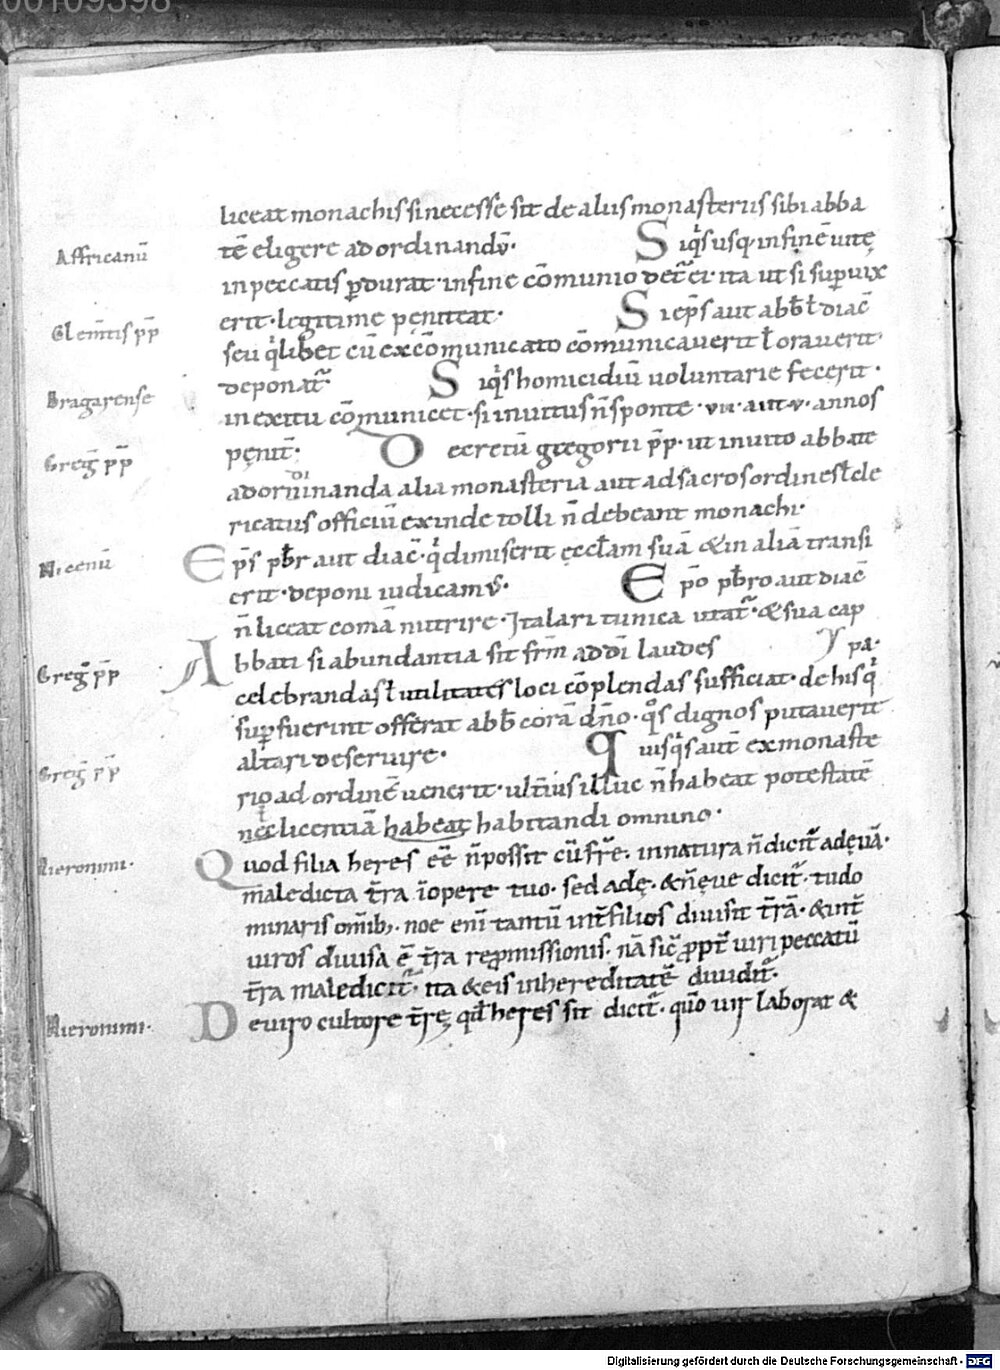 00109398
liceat monachis si necesse sit de aliis monasteriis sibi abba
Affricanū
tē eligere ad ordinandū. Siq̄s usq; in finē uitę
in peccatis p̱durat in fine cōmunio det̄ ei. ita ut si sup̱uix
Clem̄tis pp̄
erit. legitime pęniteat. Si ep̄s aut abb̄ ł diac̄
seu q̄libet cū excōmunicato cōmunicauerit ł orauerit.
Bragarense
deponat̄. Siq̄s homicidiū uoluntarie fecerit.
in exitu cōmunicet. si inuitus n̄ sponte. vii. aut v. annos
Greḡ pp̄
pęnit̄. Decretū gregorii pp̄. ut inuito abbate
ad ordinanda alia monasteria aut ad sacros ordines ł cle
ricatus officiū exinde tolli n̄ debeant monachi.
Nicenū
Ep̄s pb̄r aut diac̄. q̄ dimiserit ęccłam suā & in aliā transi
erit. deponi iudicamꝰ. Ep̄o pb̄ro aut diac̄
n̄ liceat comā nutrire. Italari tunica utat̄. & sua cap
Greḡ pp̄
Abbati si abundantia sit frm̄ ad dī laudes pa.
celebrandas ł utilitates loci cōplendas sufficiat. de his q̄
sup̱fuerint offerat abb̄ corā dn̄o. q̄s dignos putauerit
Greḡ pp̄
altari deseruire. Quisq̄s aut̄ ex monaste
rio ad ordinē uenerit. ult̄ius illuc n̄ habeat potestatē
nec licentiā habeat habitandi omnino.
Hieronimi.
Quod filia heres eē n̄ possit cū fr̄e. in natura n̄ dicit̄ ad ęuā.
maledicta t̄ra ī opere tuo. sed adę. & n̄ ęuę dicit̄. tu do
minaris om̄ib;. noe eni̅ tantū int̄ filios diuisit t̄rā. & int̄
uiros diuisa ē t̄ra rep̱missionis. nā sic̄ ppt̄ uiri peccatū
t̄ra maledicit̄. ita & eis in hereditatē diuidit̄.
Hieronimi.
De uiro cultore t̄rę qđ heres sit dicit̄. quō uir laborat &
Digitalisierung gefördert durch die Deutsche Forschungsgemeinschaft - DFG